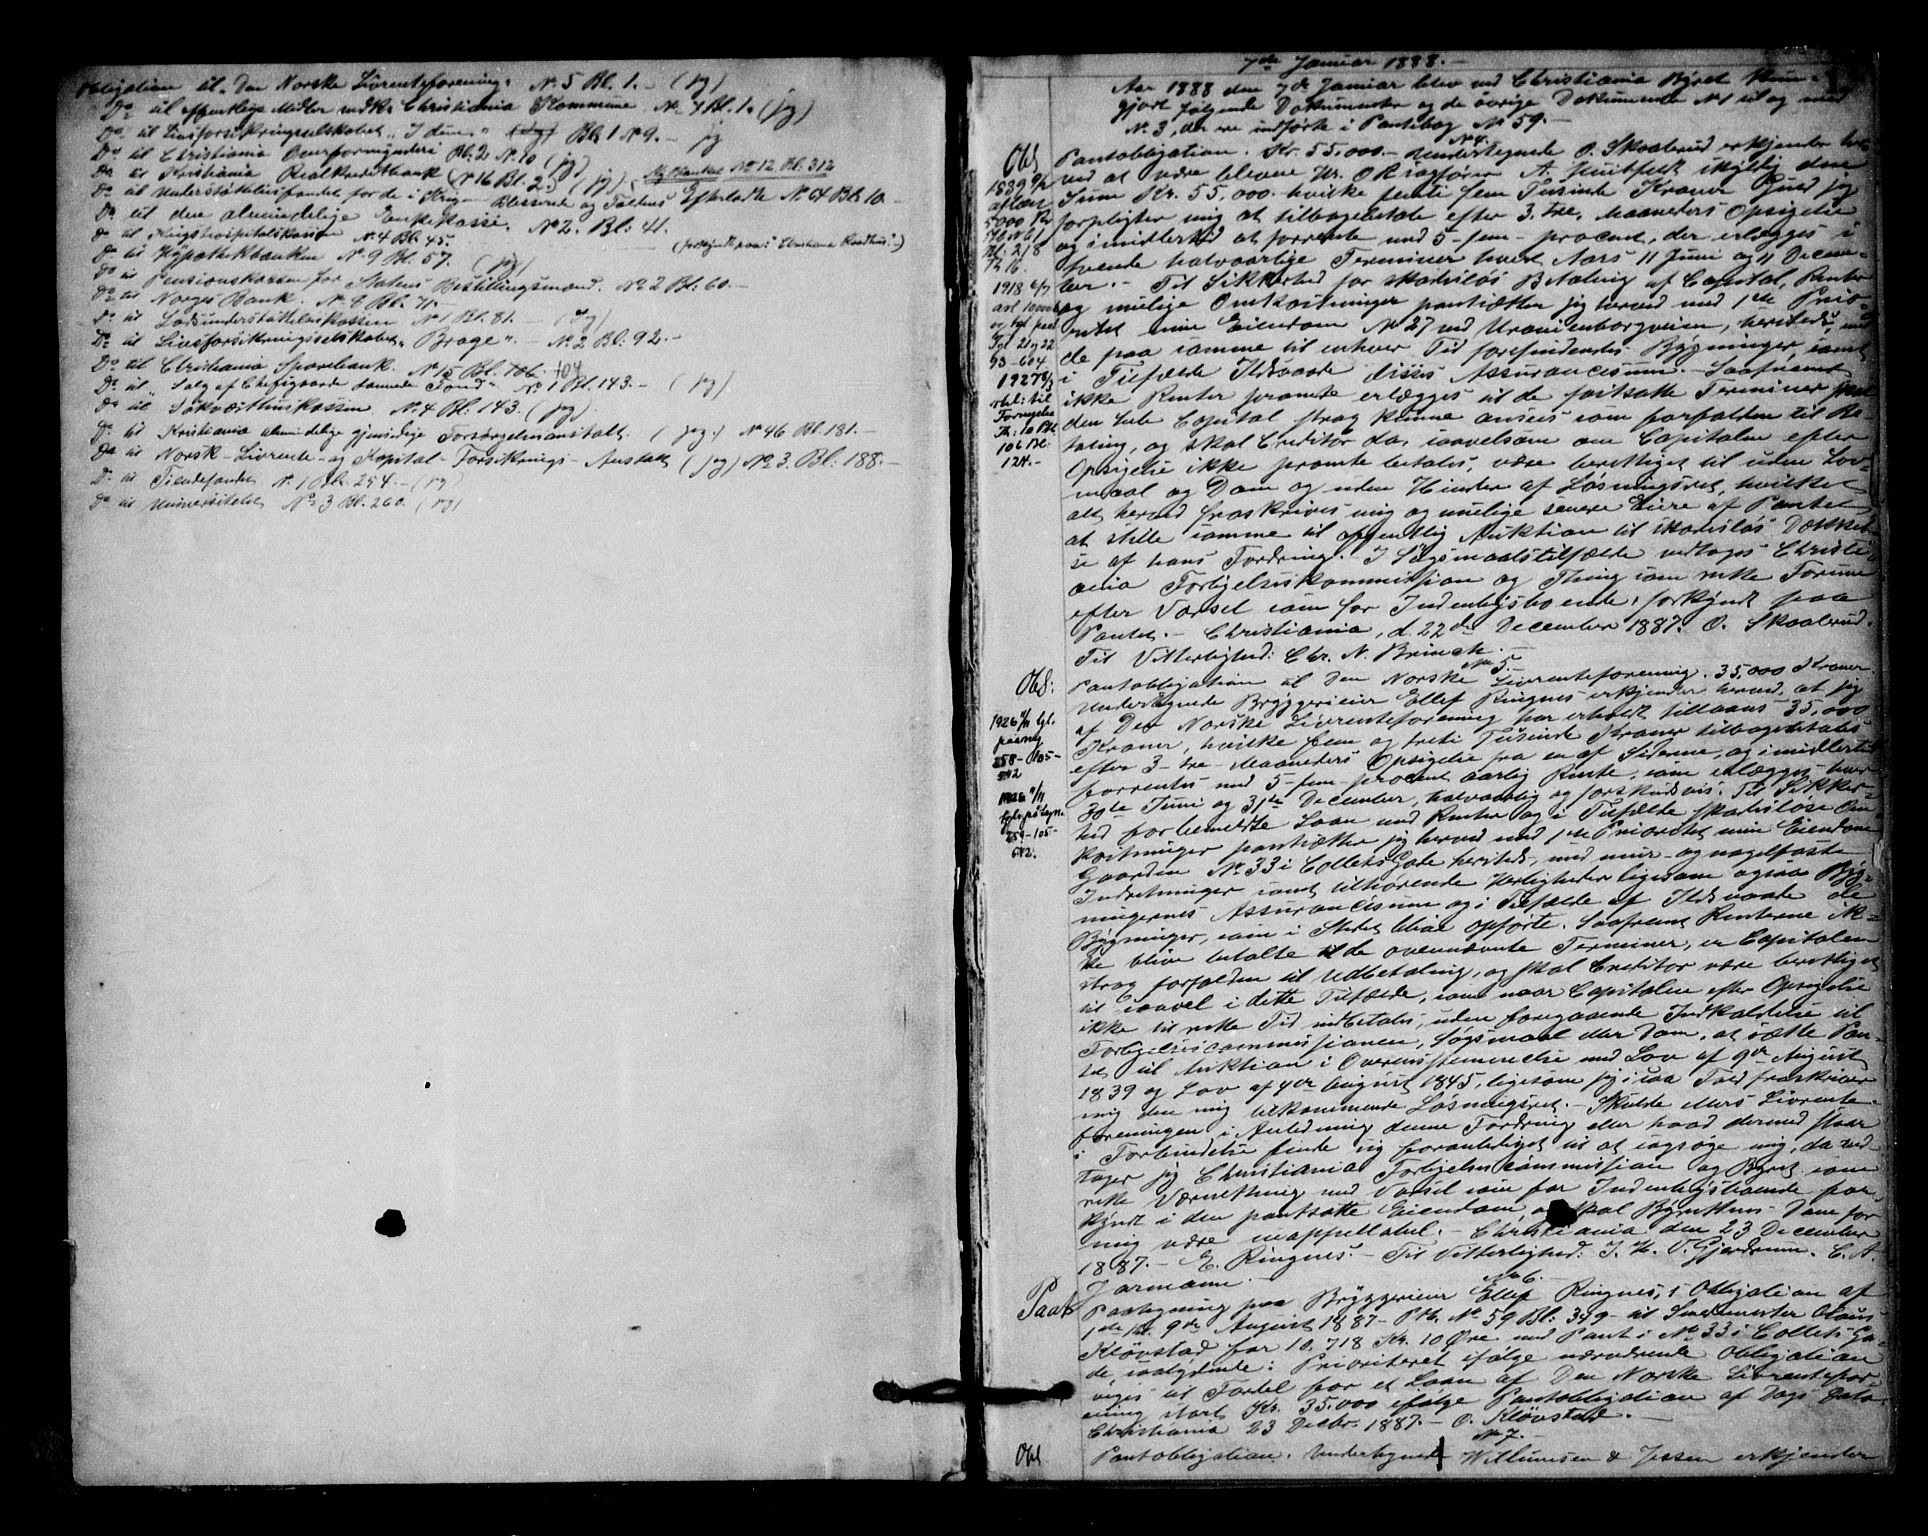 Obligation til "Den Norske Livrenteforening" No 5 Bl. 1. - (jg)
Do til offentlige Midler vedk. Christiania Kommune No 7 Bl. 1. (jg)
Do til Livsforsikringsselskabet "Idun" Bl. 1 No 9. - jg
Do til Christiania Overformynderi Bl. 2 No 10 (jg)
Do til Kristiania Realkreditbank (No 16 Bl. 2.) (jg)
No 12 Bl. 312
Do til Understøttelsesfondet for de i Krigen Blesserede og Faldnes Efterladte No 64 Bl. 10.-
Do til den almindelige Enkekasse. No 2. Bl. 41.
Do til Krigshospitalskassen No. 4 Bl. 45.
Do til Hypothekbanken No 9 Bl. 57. (jg)
Do til Pensionskassen for Statens Bestillingsmænd. No 2 Bl. 60.-
Do til Norges Bank. No 4 Bl. 71.
Do til Lodsunderstøttelseskassen No 1 Bl. 81. - (jg)
Do til Livsforsikringsselskabet "Brage". - No 2 Bl. 92.-
Do til Christiania Sparebank. No 15 Bl. 106. 104
Do til "Salg af Chefsgaarde samlede Fond" No 1 Bl. 143. - (jg)
Do til Søkvæsthuskassen No. 4 Bl. 143. (jg)
Do til Kristiania almindelige gjensidige Forsørgelsesanstalt. (jg.) No 46 Bl. 181.-
Do til Norsk-Livrente-og Kapital-Forsikrings-Anstalt (jg) No 3. Bl. 188.-
Do til Tiendefondet No. 1 Bl. 254.- (jg)
Do til Universitetet No 3 Bl. 260. (jg)
7de Januar 1888.-
Aar 1888 den 7de Januar blev ved Christiania Byret kund-
gjort følgende Dokumenter og de øvrige Dokumenter No 1 til og med
No 3, der ere indførte i Pantebog No 59.-
No 4.
Obl
Pantobligation. Kr. 55,000.- Undertegnede O. Skaalerud erkjender her-
ved at være bleven Hr. O R sagfører A. Huitfeldt skyldig den
Sum Kr. 55,000. hvilke femti fem Tusinde Kroner jeg
forpligter mig at tilbagebetale efter 3. tre, Maaneders Opsigelse
og imidlertid at forrente med 5-fem-procent, der erlægges i
tvende halvaarlige Terminer hvert Aars 11 Juni og 11 Decem-
ber.- Til Sikkerhed for skadesløs Betaling af Capital, Renter
og mulige Omkostninger pantsætter jeg herved med 1ste Prio-
ritet min Eiendom No 27 ved Uranienborgveien, hersteds, med
de paa samme til enhver Tid forefindendes Bygninger, samt
i Tilfælde Ildsvaade disses Assurancesum.- Saafremt
ikke Renter promte erlægges til de fortsatte Terminer skal
den hele Capital strax kunne ansees som forfalden til Be-
taling, og skal Creditor da, saavelsom om Capitalen efter
Opsigelse ikke promte betales, være berettiget til uden Lov-
maal og Dom og uden Hinder af Løsningsret, hvilket
alt herved fraskrives mig og mulige senere Eiere af Pantet,
at stille samme til offentlig Auktion til skadesløs Dækkel-
se af hans Fordring. I Søgsmaalstilfælde vedtages Christi-
ania Forligelseskommission og Thing som rette Forum
efter Varsel som for Indenbysboende, forkyndt paa
Pantet.- Christiania, d. 22de December 1887. O. Skaalerud.
Til Vitterlighed: Chr. N. Brinch.-
No 5.
Obl:
Pantobligation til Den Norske Livrenteforening. 35,000 Kroner
Undertegnede Bryggerieier Ellef Ringnes erkjender herved, at jeg
af Den Norske Livrenteforening har erholdt tillaans 35,000
Kroner, hvilke fem og treti Tusinde Kroner tilbagebetales
efter 3-tre-Maaneders Opsigelse fra en af Siderne, og imidlertid
forrentes med 5-fem-procent aarlig Rente, som erlægges hver
30te Juni og 31te December, halvaarlig og forskudsvis. Til Sikker-
hed for bemeldte Laan med Renter og i Tilfælde skadesløse Om-
kostninger pantsætter jeg herved med 1ste Prioritet min Eiendom
Gaarden No 33 i Collets Gade hersteds, med mur- og nagelfaste
Indretninger samt tilhørende Herligheder ligesom ogsaa Byg-
ningernes Assurancesum og i Tilfælde af Ildsvaade de
Bygninger, som i Stedet blive opførte. Saafremt Renterne ik-
ke blive betalte til de ovennævnte Terminer, er Capitalen
strax forfalden til Udbetaling, og skal Creditor være berettiget
til saavel i dette Tilfælde, som naar Capitalen efter Opsigelse
ikke til rette Tid indbetales, uden foregaaende Indkaldelse til
Forligelsescommissionen, Søgsmaal eller Dom, at sætte Pan-
tet til Auktion i Overensstemmelse med Lov af 9de August
1839 og Lov af 4de August 1845, ligesom jeg i saa Fald fraskriver
mig den mig tilkommende Løsningsret.- Skulde ellers Livrente-
foreningen i Anledning denne Fordring eller hvad dermed staar
i Forbindelse finde sig foranlediget til at sagsøge mig, da ved-
tager jeg Christiania Forligelsescommission og Byret som
rette Værnething med Varsel som for Indenbysboende for-
kyndt i den pantsatte Eiendom, og skal Byrettens Dom for
mig være inappellabel.- Christiania den 23 December
1887.- E. Ringnes.- Til Vitterlighed: J. H. V. Gjerdrum. C. A.
Jarmann.-
No 6.-
Paat
Paategning paa Bryggerieier Ellef Ringnes's Obligation af
9de August 1887- Ptb. No 59 Bl: 349- til Smedmester Olaus
Kløvstad for 10,718 Kr. 10 Øre med Pant i No 33 i Collets Ga-
de, saalydende: Prioriteret ifølge nærværende Obligation
viges til Fordel for et Laan af Den Norske Livrentefor-
ening stort Kr. 35,000 ifølge Pantobligation af Dags Dato
Christiania 23 Decbr. 1887.- O. Kløvstad.-
No 7.-
Obl
Pantobligation. Undertegnede Willumsen & Jessen erkjender